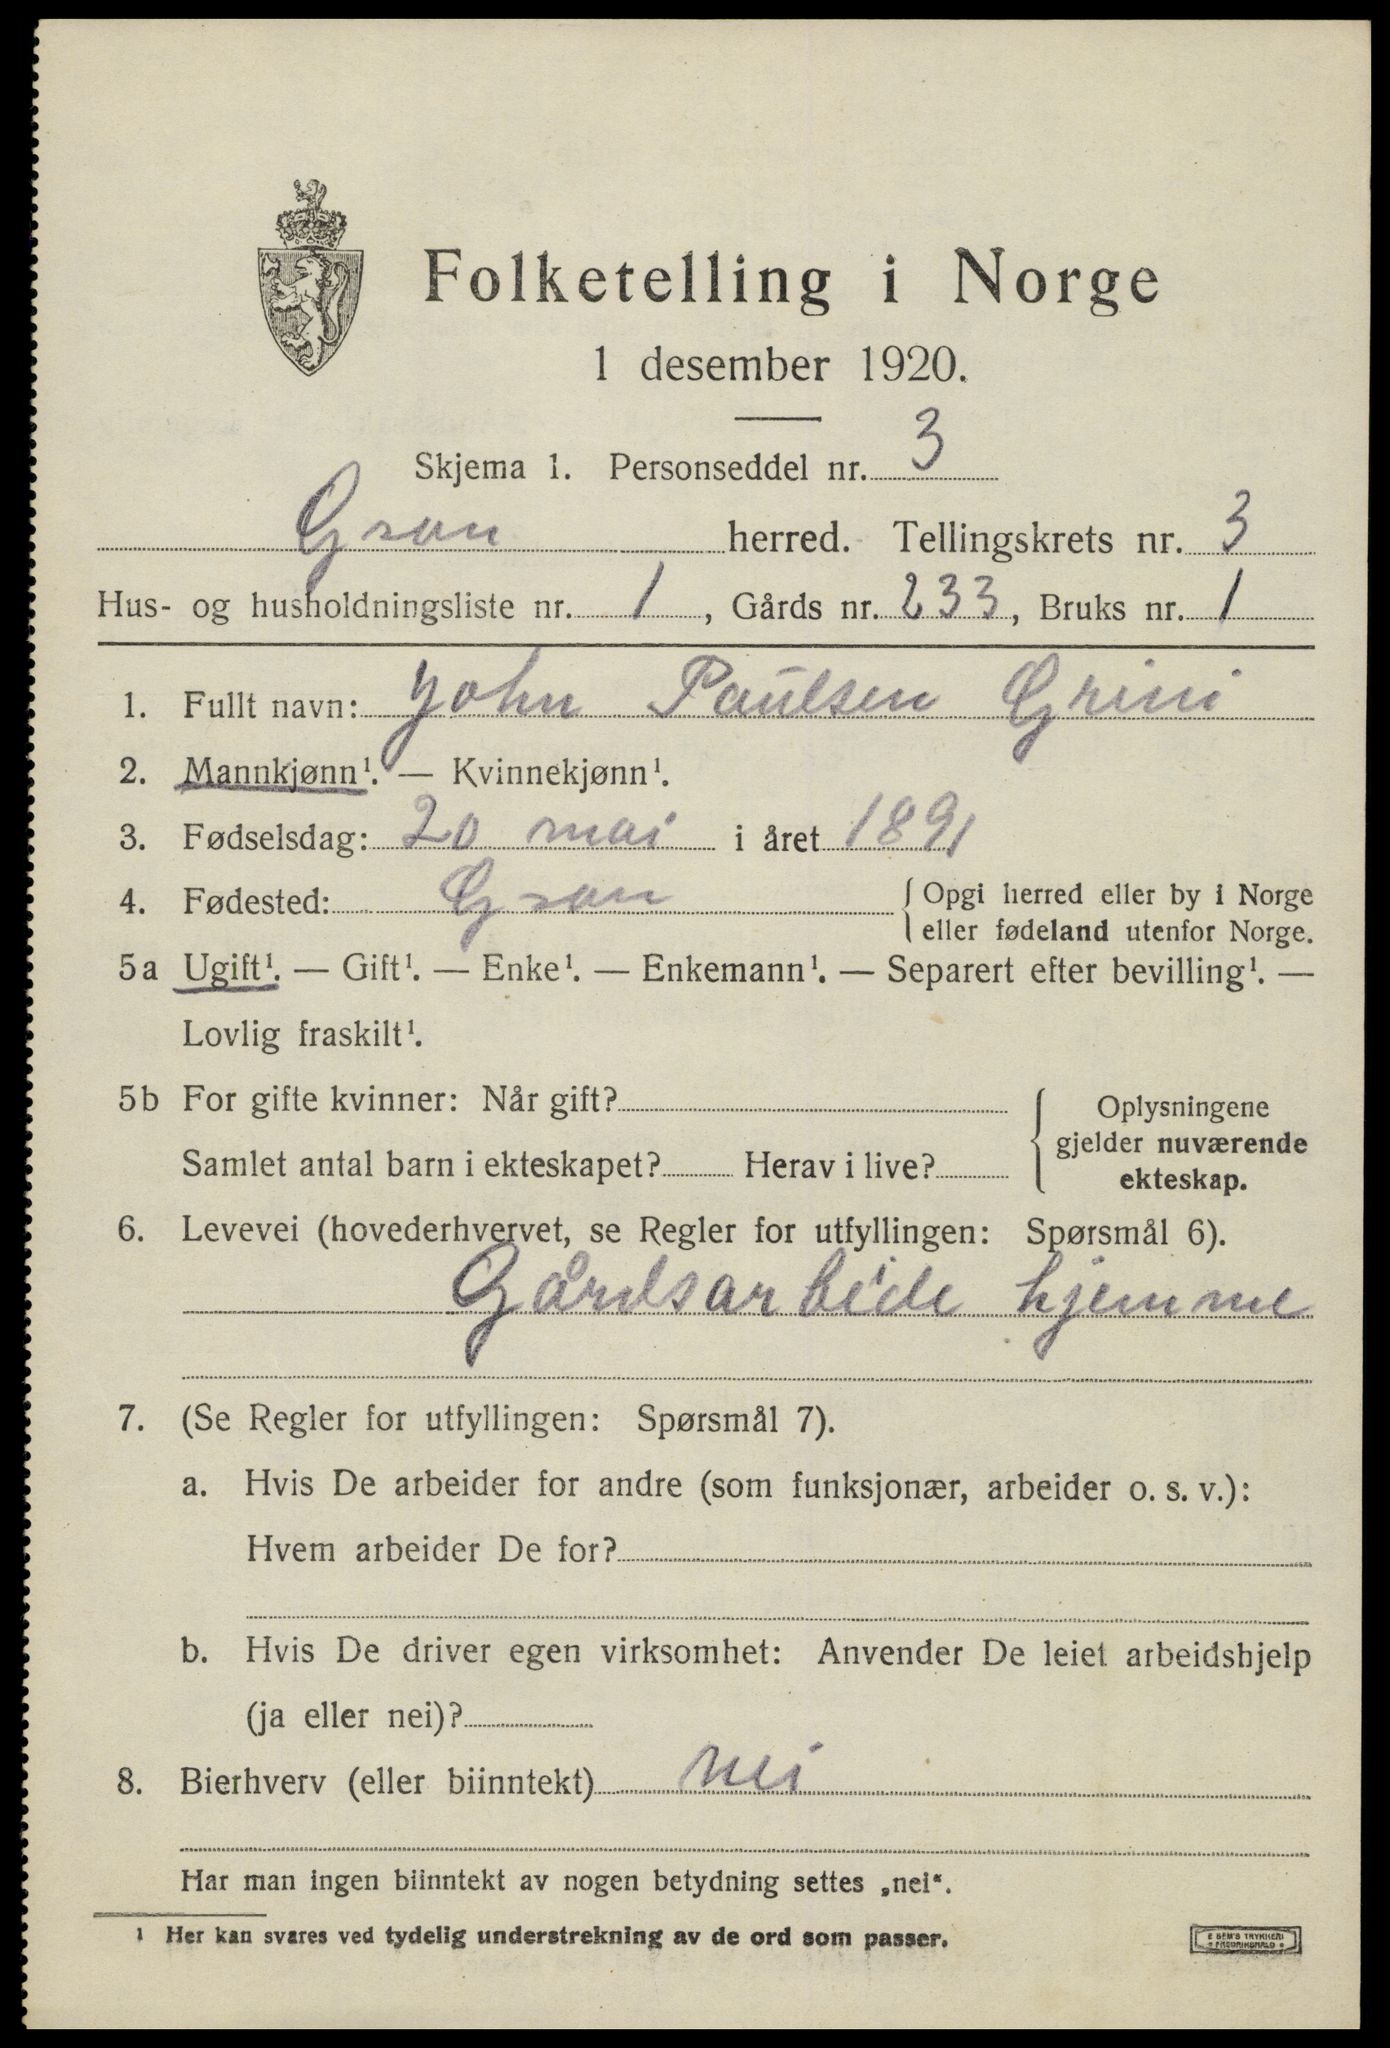 Folketelling i Norge
1 desember 1920.
Skjema 1. Personseddel nr. 3
Gran herred. Tellingskrets nr. 3
Hus- og husholdningsliste nr. 1, Gårds nr. 233, Bruks nr. 1
1. Fullt navn: John Paulsen Grini
2. Mannkjønn¹. — Kvinnekjønn¹.
3. Fødselsdag: 20 mai i året 1891
4. Fødested: Gran { Opgi herred eller by i Norge
eller fødeland utenfor Norge.
5a Ugift¹. — Gift¹. — Enke¹. — Enkemann¹. — Separert efter bevilling¹. —
Lovlig fraskilt¹.
5b For gifte kvinner: Når gift?
Samlet antal barn i ekteskapet? Herav i live?
{ Oplysningene
gjelder nuværende
ekteskap.
6. Levevei (hovederhvervet, se Regler for utfyllingen: Spørsmål 6).
Gårdsarbeide hjemme
7. (Se Regler for utfyllingen: Spørsmål 7).
a. Hvis De arbeider for andre (som funksjonær, arbeider o. s. v.):
Hvem arbeider De for?
b. Hvis De driver egen virksomhet: Anvender De leiet arbeidshjelp
(ja eller nei)?
8. Bierhverv (eller biinntekt) nei
Har man ingen biinntekt av nogen betydning settes „nei“.
1 Her kan svares ved tydelig understrekning av de ord som passer.
E SEM'S TRYKKERI
FREDRIKSHALD